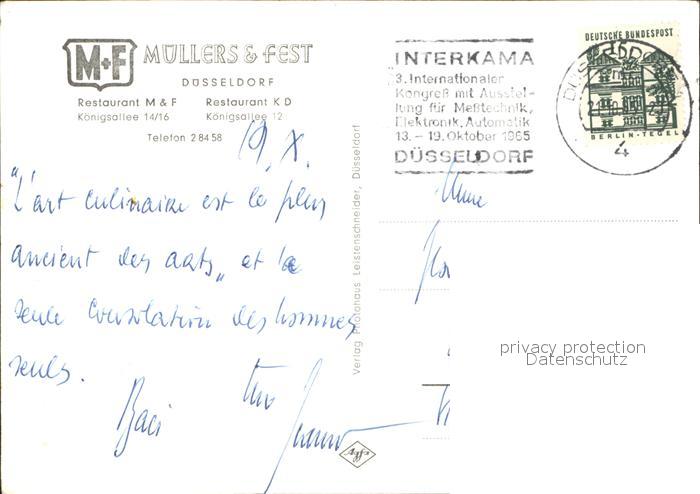 M+F
MÜLLERS & FEST
DÜSSELDORF
Restaurant M & F Restaurant K D
Königsallee 14/16 Königsallee 12
Telefon 2 84 58
19. X.
"L'art culinaire est le plus
ancient des arts" et la
seule consolation des hommes
seuls.
Baci
Verlag Photohaus Leistenschneider, Düsseldorf
Agfa
INTERKAMA
3. Internationaler
Kongreß mit Ausstel-
lung für Meßtechnik,
Elektronik, Automatik
13. – 19. Oktober 1965
DÜSSELDORF
DEUTSCHE BUNDESPOST
15
BERLIN-TEGEL
DÜSSELDORF
4
privacy protection
Datenschutz